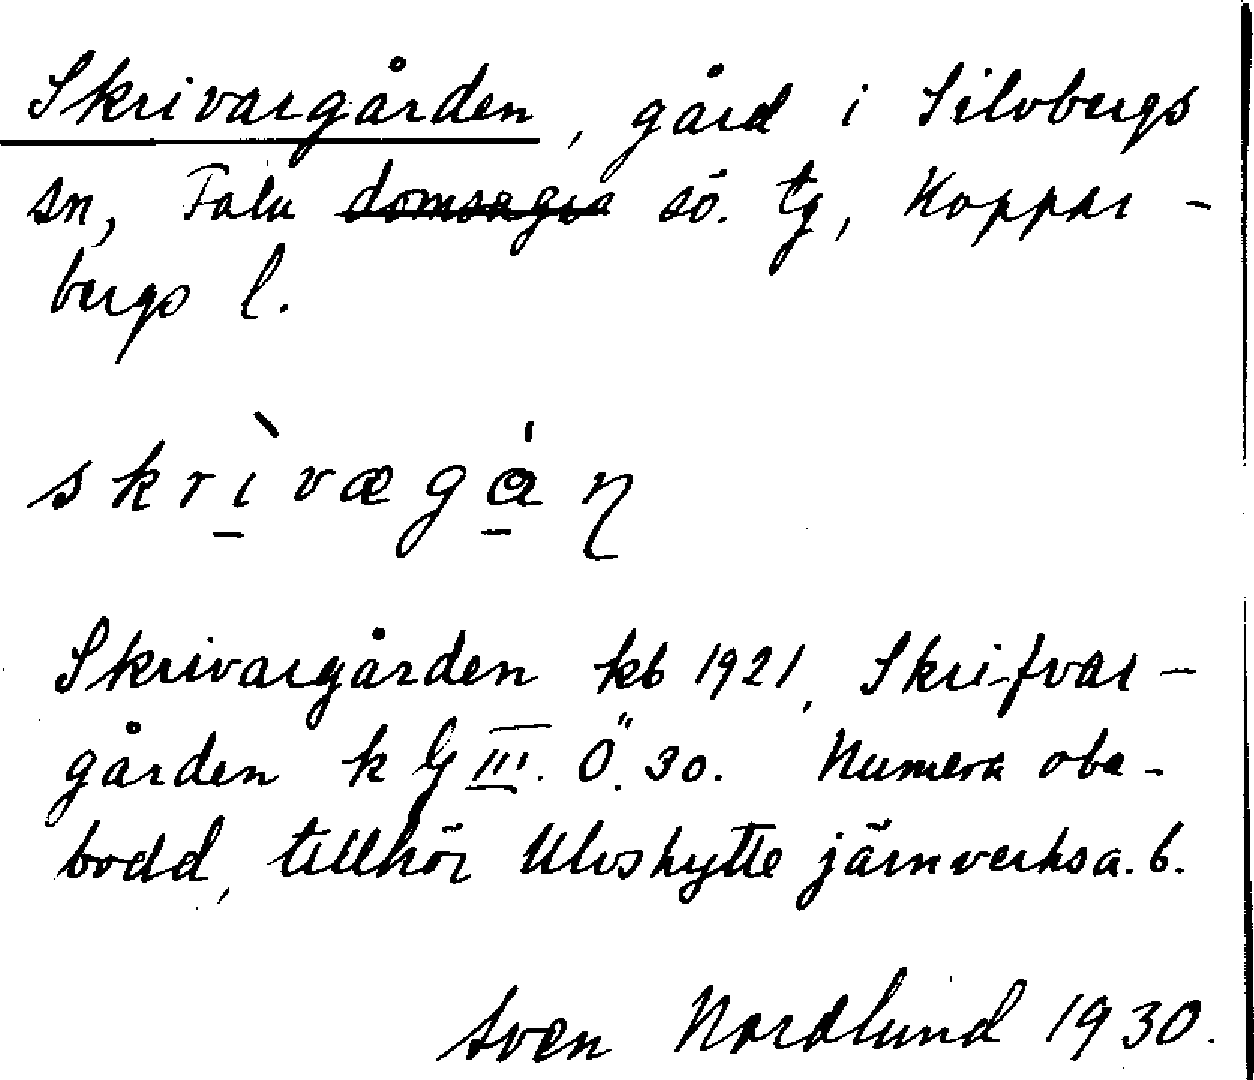 Skrivargården, gård i Silvbergs
sn, Falu domsaga sö. tg, Koppar-
bergs l.
skrìvægǻɳ
Skrivargården kb 1921, Skrifvar-
gården k G III. Ö. 30. Numera obe-
bodd, tillhör Ulvshytte järnverks a.b.
Sven Nordlund 1930.